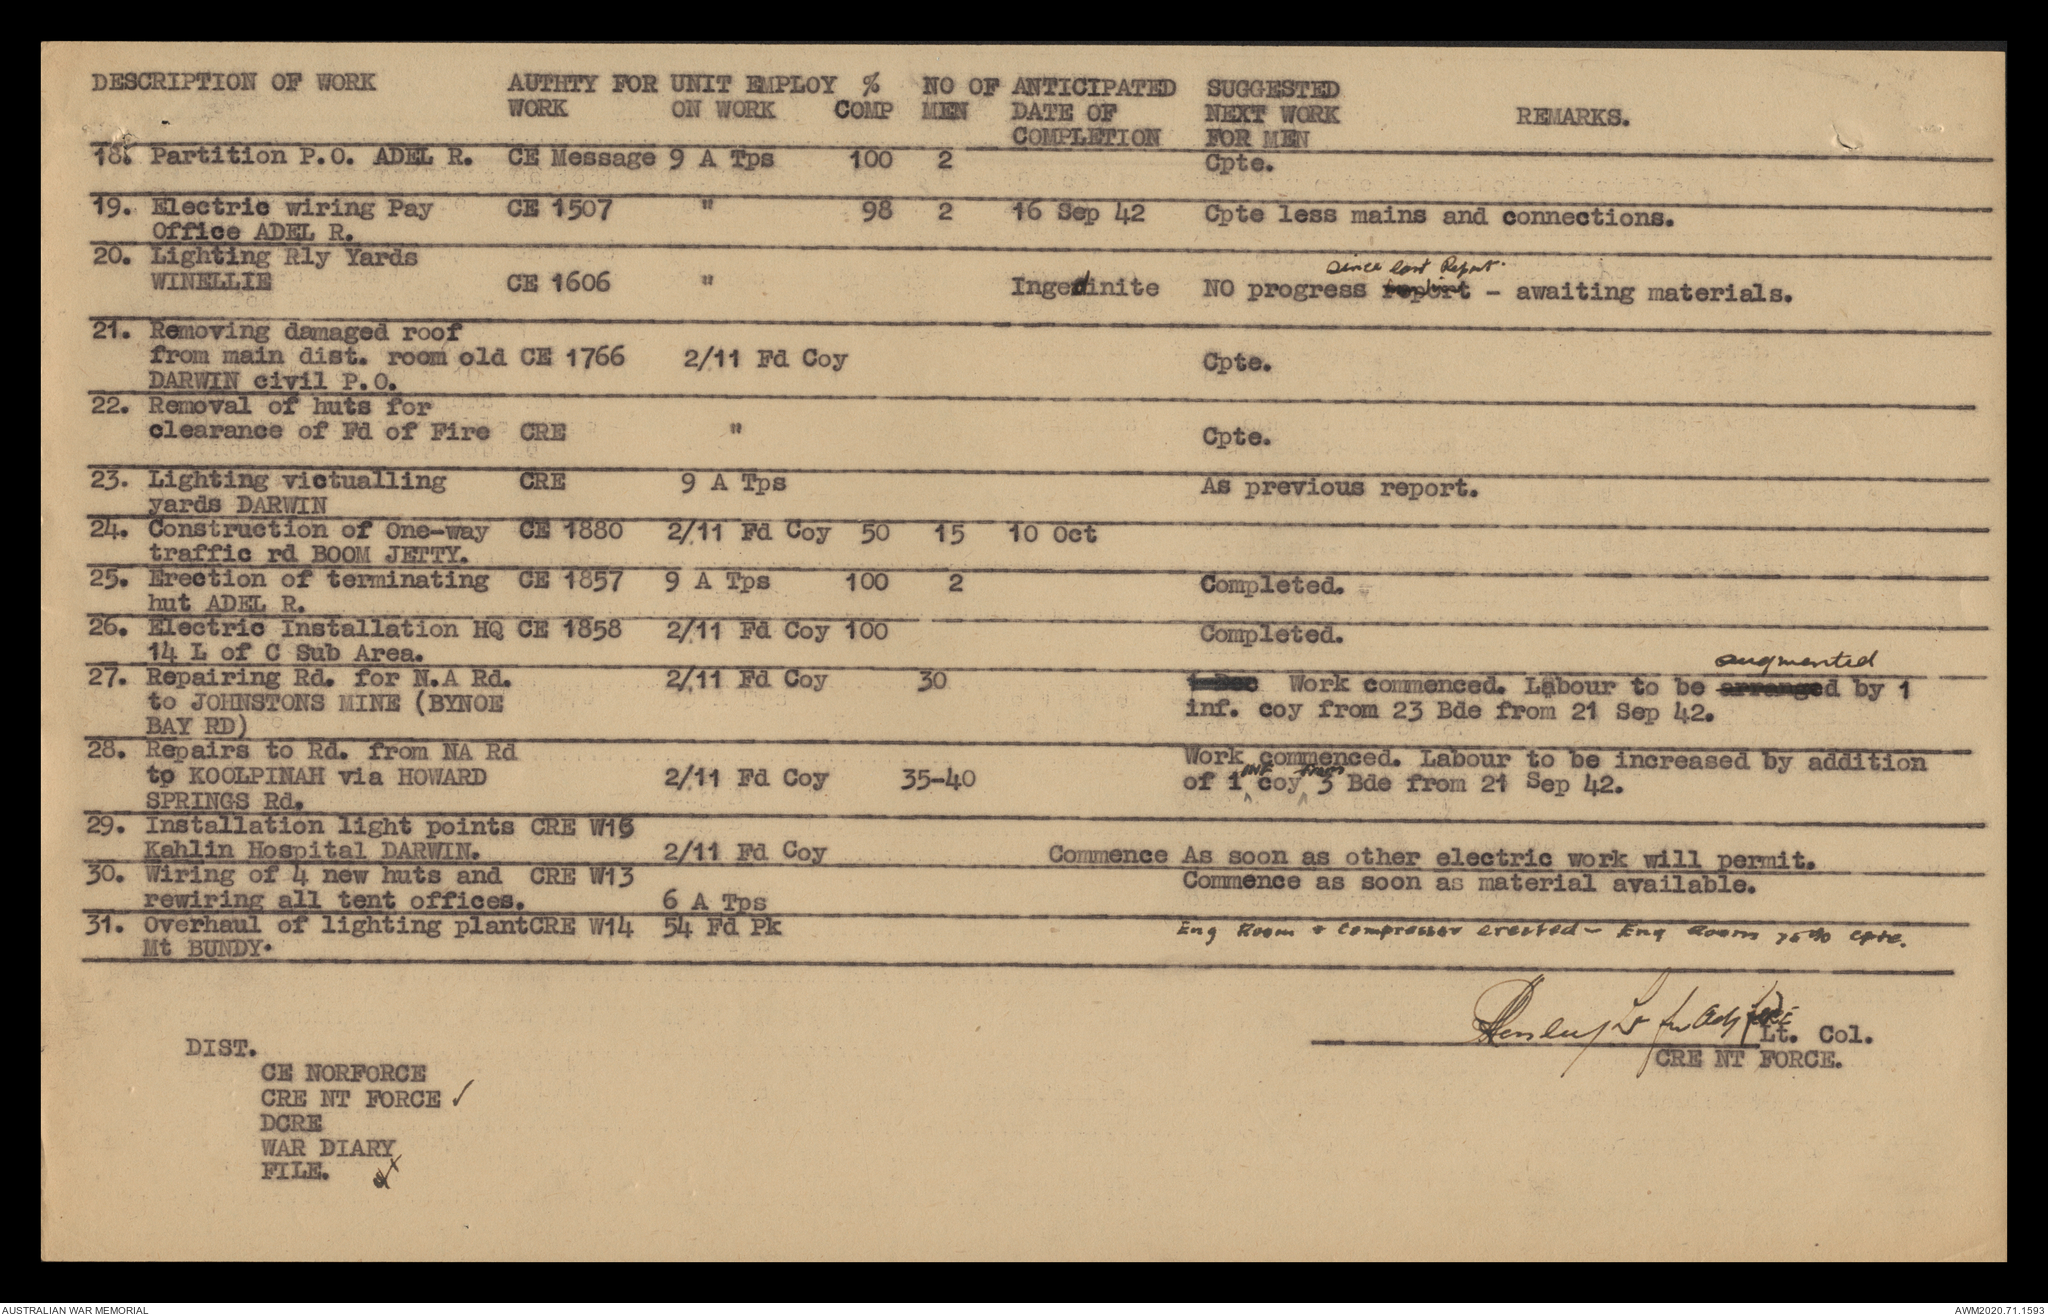 DESCRIPTION OF WORK AUTHTY FOR UNIT EMPLOY % NO OF ANTICIPATED SUGGESTED
WORK ON WORK COMP MEN DATE OF NEXT WORK REMARKS.
COMPLETION FOR MEN
18. Partition P.O. ADEL R. CE Message 9 A Tps 100 2 Cpte.
19. Electric wiring Pay CE 1507 " 98 2 16 Sep 42 Cpte less mains and connections.
Office ADEL R.
20. Lighting Rly Yards
since last Report.
WINELLIE CE 1606 " Ingedinite NO progress report - awaiting materials.
21. Removing damaged roof
from main dist. room old CE 1766 2/11 Fd Coy Cpte.
DARWIN civil P.O.
22. Removal of huts for
clearance of Fd of Fire CRE " Cpte.
23. Lighting victualling CRE 9 A Tps As previous report.
yards DARWIN
24. Construction of One-way CE 1880 2/11 Fd Coy 50 15 10 Oct
traffic rd BOOM JETTY.
25. Erection of terminating CE 1857 9 A Tps 100 2 Completed.
hut ADEL R.
26. Electric Installation HQ CE 1858 2/11 Fd Coy 100 Completed.
14 L of C Sub Area.
augmented
27. Repairing Rd. for N.A Rd. 2/11 Fd Coy 30 1 Dec Work commenced. Labour to be arranged by 1
to JOHNSTONS MINE (BYNOE inf. coy from 23 Bde from 21 Sep 42.
BAY RD)
28. Repairs to Rd. from NA Rd Work commenced. Labour to be increased by addition
to KOOLPINAH via HOWARD 2/11 Fd Coy 35-40 of 1 INF coy from 3 Bde from 21 Sep 42.
SPRINGS Rd.
29. Installation light points CRE W16
Kahlin Hospital DARWIN. 2/11 Fd Coy Commence As soon as other electric work will permit.
30. Wiring of 4 new huts and CRE W13 Commence as soon as material available.
rewiring all tent offices. 6 A Tps
31. Overhaul of lighting plant CRE W14 54 Fd Pk Eng Room & Compressor erected - Eng Room 75% cpte.
Mt BUNDY.
Lt for Adj CRE
Lt. Col.
CRE NT FORCE.
DIST.
CE NORFORCE
CRE NT FORCE ✓
DCRE
WAR DIARY
FILE.
AUSTRALIAN WAR MEMORIAL AWM2020.71.1593